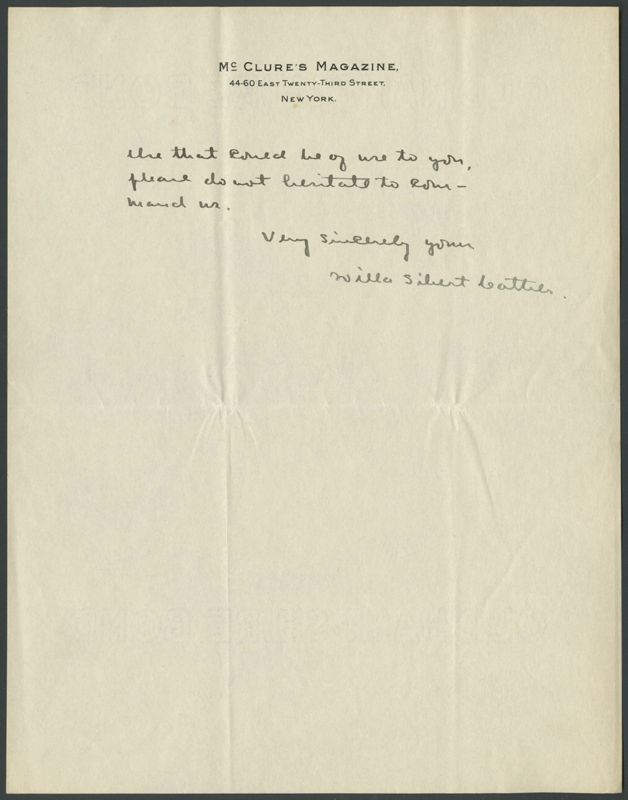 Mc CLURE'S MAGAZINE,
44-60 EAST TWENTY-THIRD STREET,
NEW YORK.
else that could be of use to you,
please do not hesitate to com-
mand us.
Very sincerely yours
Willa Sibert Cather.